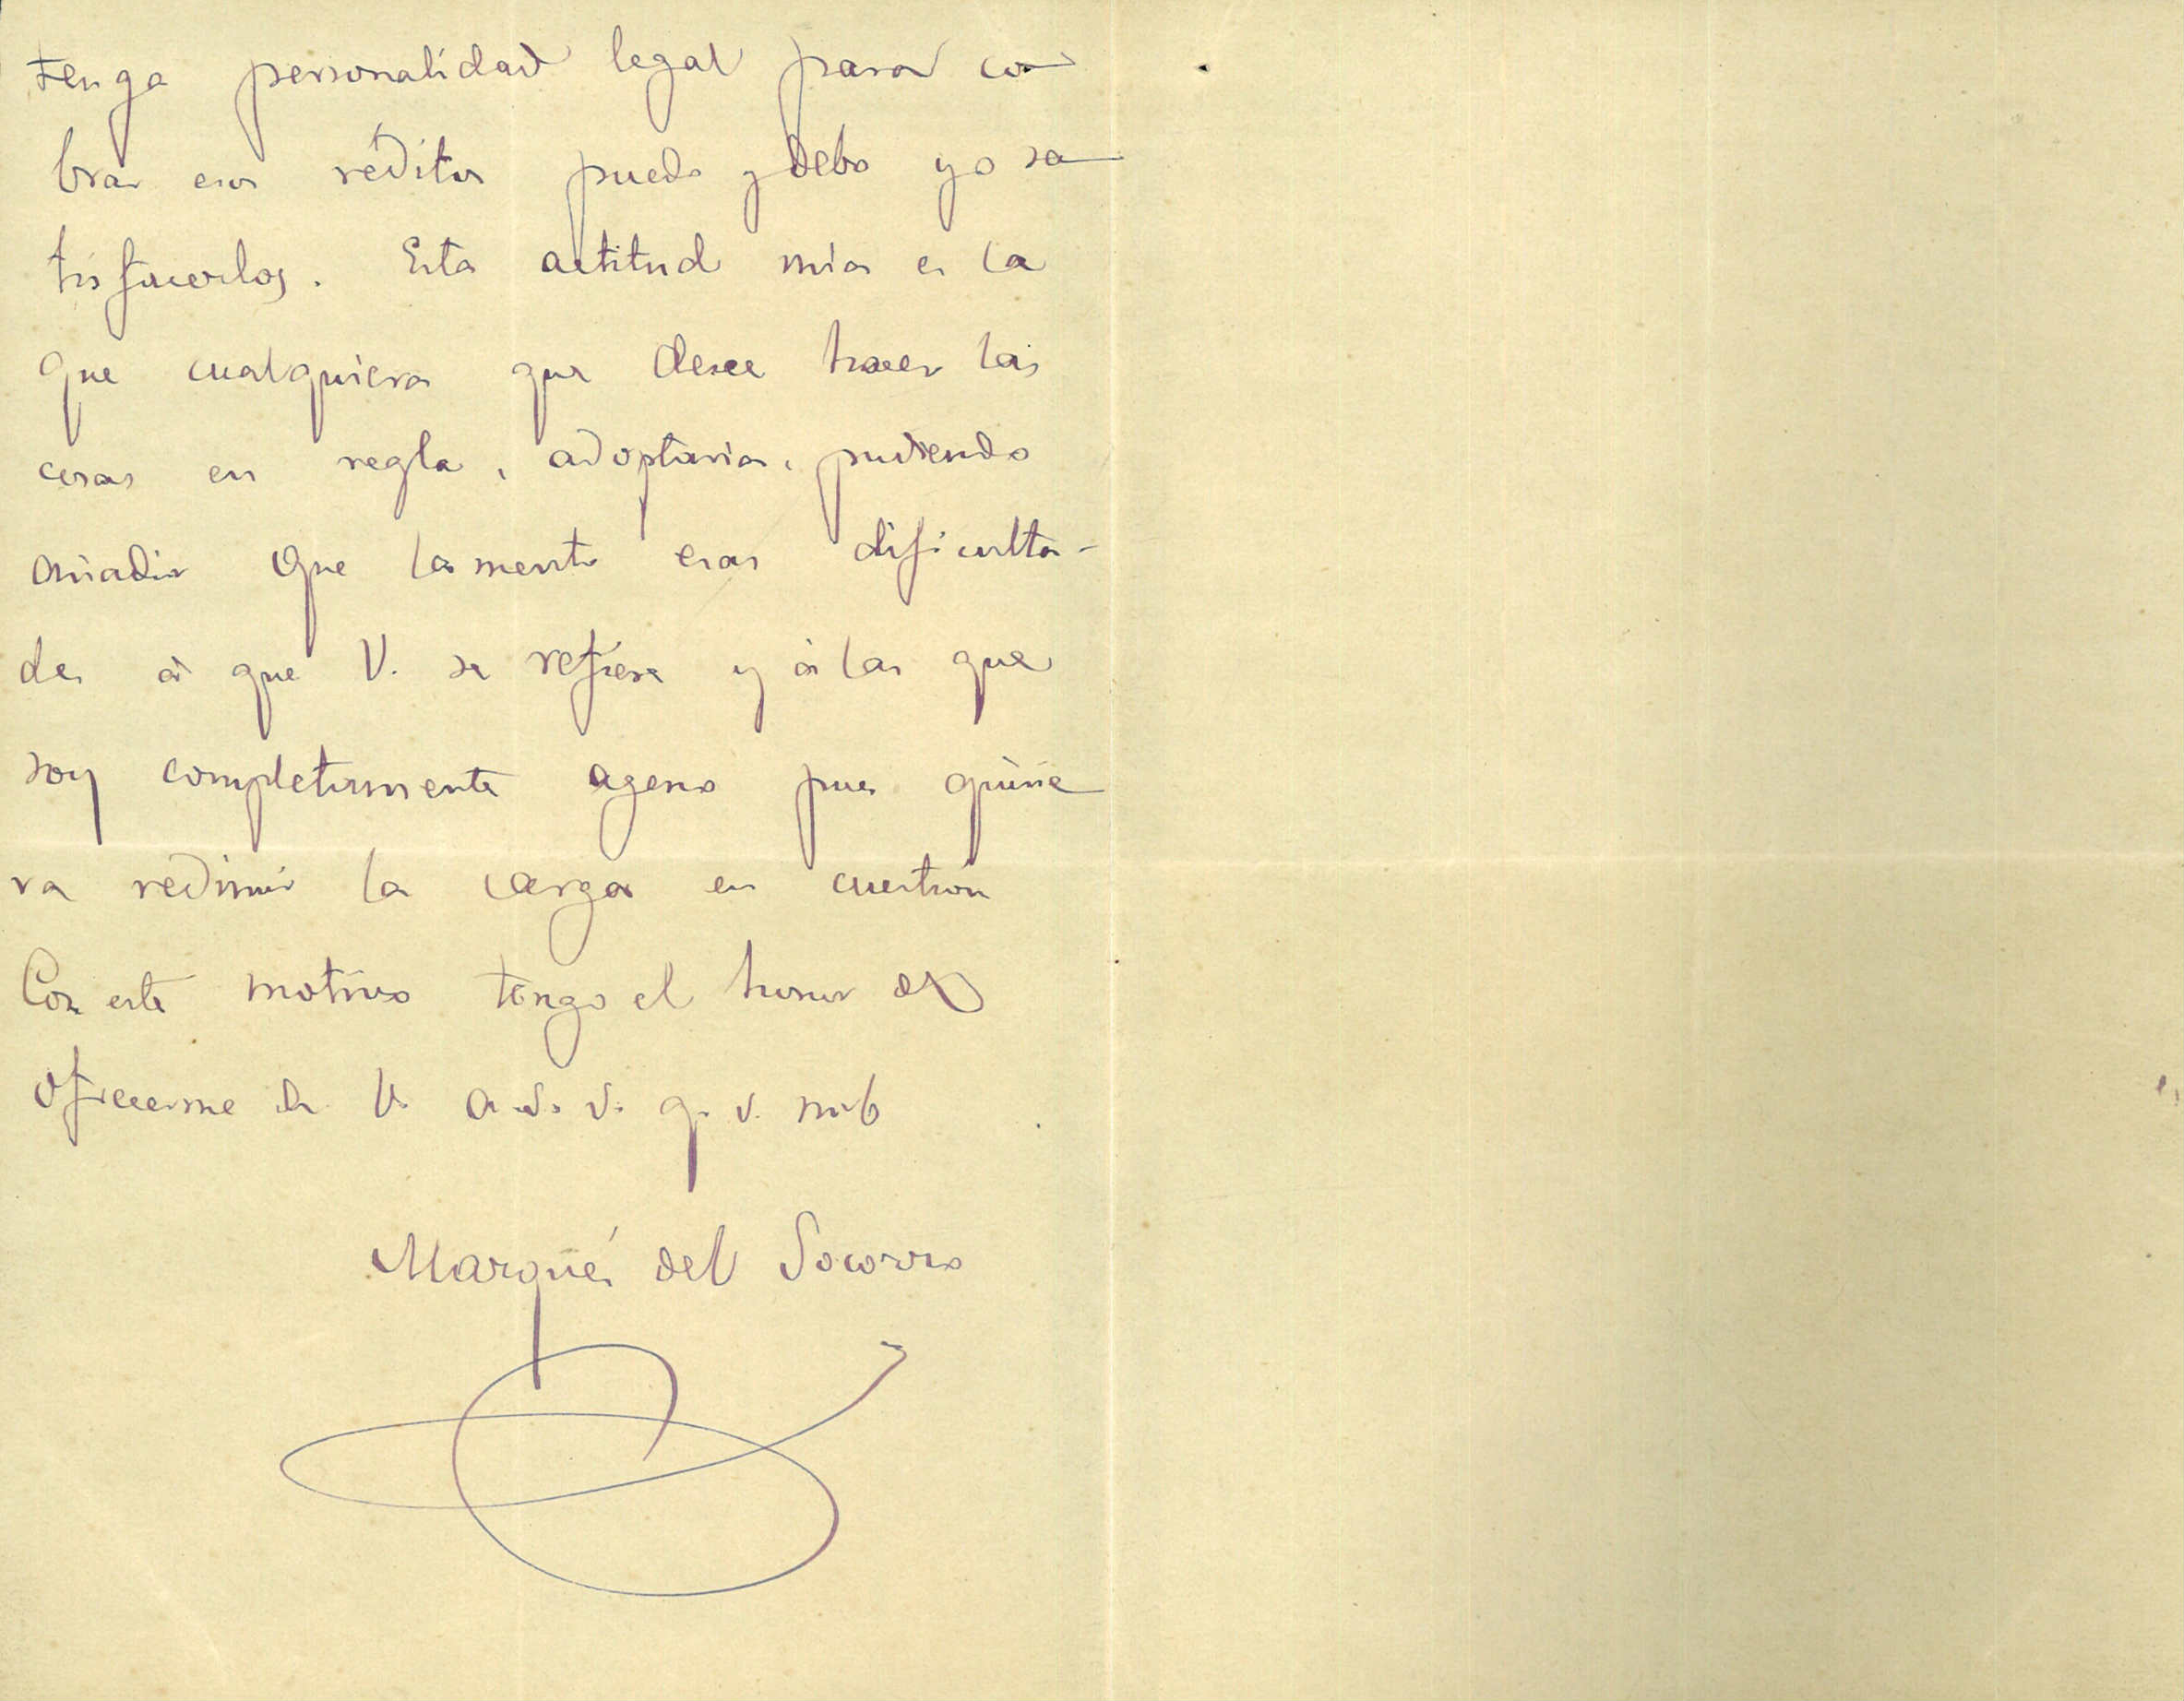 tenga personalidad legal para co
brar esos réditos puedo y debo yo sa
tisfacerlos. Esta actitud mia es la
que cualquiera que desee hacer las
cosas en regla, adoptaria, pudiendo
añadir que lamento esas dificulta-
des á que V. se refiere y á las que
soy completamente ageno pues quisie
ra redimir la carga en cuestión
Con este motivo tengo el honor de
ofrecerme de V. a. s. s. q. s. m b
Marqués del Socorro